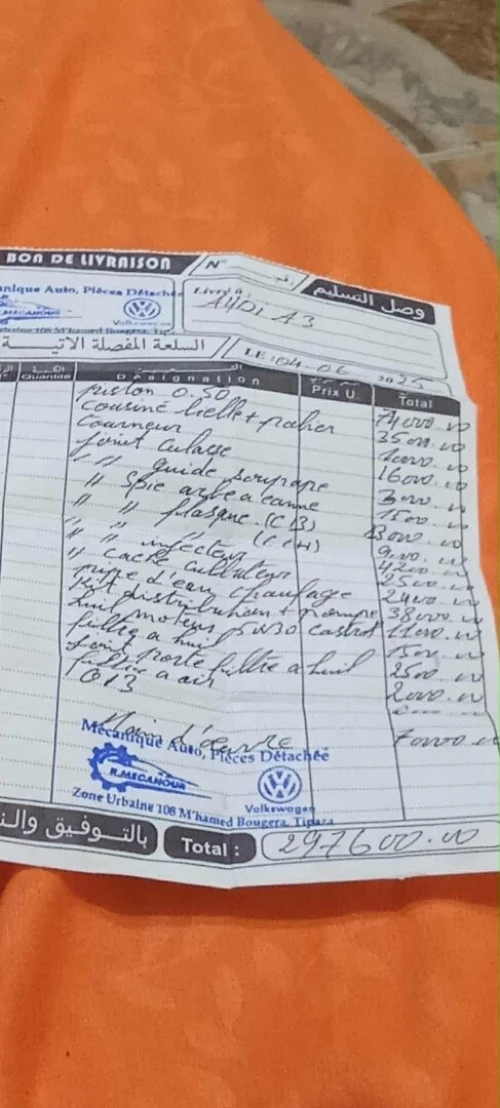 BON DE LIVRAISON
N°
وصل التسليم
Mécanique Auto, Pièces Détachée
Livré à
AUDI A3
R.MECANOUR
Volkswagen
Zone Urbaine 108 M'hamed Bougera, Tipaza
السلعة المفصلة الآتيـــة
LE: 04-06 2025
Quantité
Désignation
Prix U.
Total
piston 0.50 74000.00
cousiné bielle + palier 35000.00
Courneur
joint culasse 16000.00
" " guide soupape
" spie arbre a canne
" " plasque (CB)
" "
" " injecteur
" cache culbuteur
pipe d'eau chaufage
Kit distribution + pompe 38000.00
huil moteur 5W30 castrol 11000.00
filltre a huil 1500.00
joint porte filltre a huil 2500
filltre a air 2000.00
G13
Main d'oeuvre 70000.00
Mécanique Auto, Pièces Détachée
R.MECANOUR
Volkswagen
Zone Urbaine 108 M'hamed Bougera, Tipaza
بالتـــوفيق والنـ
Total :
297600.00